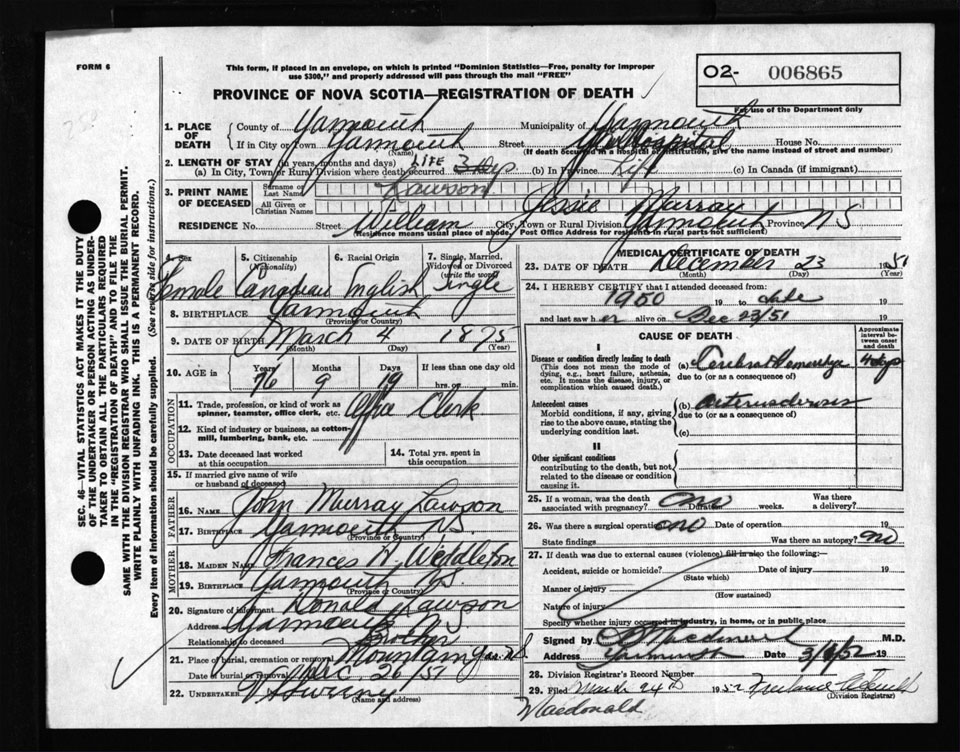 FORM 6
This form, if placed in an envelope, on which is printed "Dominion Statistics—Free, penalty for improper
use $300," and properly addressed will pass through the mail "FREE"
O2- 006865
For use of the Department only
PROVINCE OF NOVA SCOTIA—REGISTRATION OF DEATH
1. PLACE OF DEATH County of Yarmouth Municipality of Yarmouth
If in City or Town Yarmouth Street Hospital House No.
(Name) (If death occurred in a hospital or institution, give the name instead of street and number)
2. LENGTH OF STAY (in years, months and days)
(a) In City, Town or Rural Division where death occurred LIFE 3 dys (b) In Province Life (c) In Canada (if immigrant)
3. PRINT NAME OF DECEASED
Surname or Last Name Lawson
All Given or Christian Names Jessie Murray
RESIDENCE No. Street William City, Town or Rural Division Yarmouth Province NS
(Residence means usual place of abode, Post Office Address for residents in rural parts not sufficient)
4. Sex Female
5. Citizenship (Nationality) Canadian
6. Racial Origin English
7. Single, Married, Widowed or Divorced (write the word) Single
8. BIRTHPLACE Yarmouth
(Province or Country)
9. DATE OF BIRTH March 4 1875
(Month) (Day) (Year)
10. AGE in Years 76 Months 9 Days 19 If less than one day old
hrs. or min.
OCCUPATION
11. Trade, profession, or kind of work as
spinner, teamster, office clerk, etc. Office Clerk
12. Kind of industry or business, as cotton-
mill, lumbering, bank, etc.
13. Date deceased last worked
at this occupation
14. Total yrs. spent in
this occupation
15. If married give name of wife
or husband of deceased
FATHER
16. Name John Murray Lawson
17. Birthplace Yarmouth NS
(Province or Country)
MOTHER
18. Maiden Name Frances W. Weddleton
19. Birthplace Yarmouth NS
(Province or Country)
20. Signature of informant Donald Lawson
Address Yarmouth
Relationship to deceased Brother
21. Place of burial, cremation or removal Mountain
Date of burial or removal Dec 26/51
22. UNDERTAKER V Sweeny
(Name and address)
MEDICAL CERTIFICATE OF DEATH
23. DATE OF DEATH December 23 1951
(Month) (Day) (Year)
24. I HEREBY CERTIFY that I attended deceased from:
1950 19 to date 19
and last saw her alive on Dec 23/51 19
CAUSE OF DEATH
Approximate interval between onset and death
I
Disease or condition directly leading to death
(This does not mean the mode of
dying, e.g., heart failure, asthenia,
etc. It means the disease, injury, or
complication which caused death.)
(a) Cerebral Hemorrhage 4 dys
due to (or as a consequence of)
Antecedent causes
Morbid conditions, if any, giving
rise to the above cause, stating the
underlying condition last.
(b) arteriosclerosis
due to (or as a consequence of)
(c)
II
Other significant conditions
contributing to the death, but not
related to the disease or condition
causing it.
25. If a woman, was the death
associated with pregnancy? no Duration weeks. Was there
a delivery?
26. Was there a surgical operation no Date of operation 19
State findings Was there an autopsy? no
27. If death was due to external causes (violence) fill in also the following:
Accident, suicide or homicide? Date of injury 19
(State which)
Manner of injury
(How sustained)
Nature of injury
Specify whether injury occurred in industry, in home, or in public place
Signed by M.D.
Address Yarmouth Date 19
28. Division Registrar's Record Number
29. Filed March 24th 1952
(Division Registrar)
Macdonald
SEC. 46—VITAL STATISTICS ACT MAKES IT THE DUTY
OF THE UNDERTAKER OR PERSON ACTING AS UNDER-
TAKER TO OBTAIN ALL THE PARTICULARS REQUIRED
IN THE "REGISTRATION OF DEATH" AND TO FILE THE
SAME WITH THE DIVISION REGISTRAR WHO SHALL ISSUE THE BURIAL PERMIT.
WRITE PLAINLY WITH UNFADING INK. THIS IS A PERMANENT RECORD.
Every item of information should be carefully supplied. (See reverse side for instructions.)